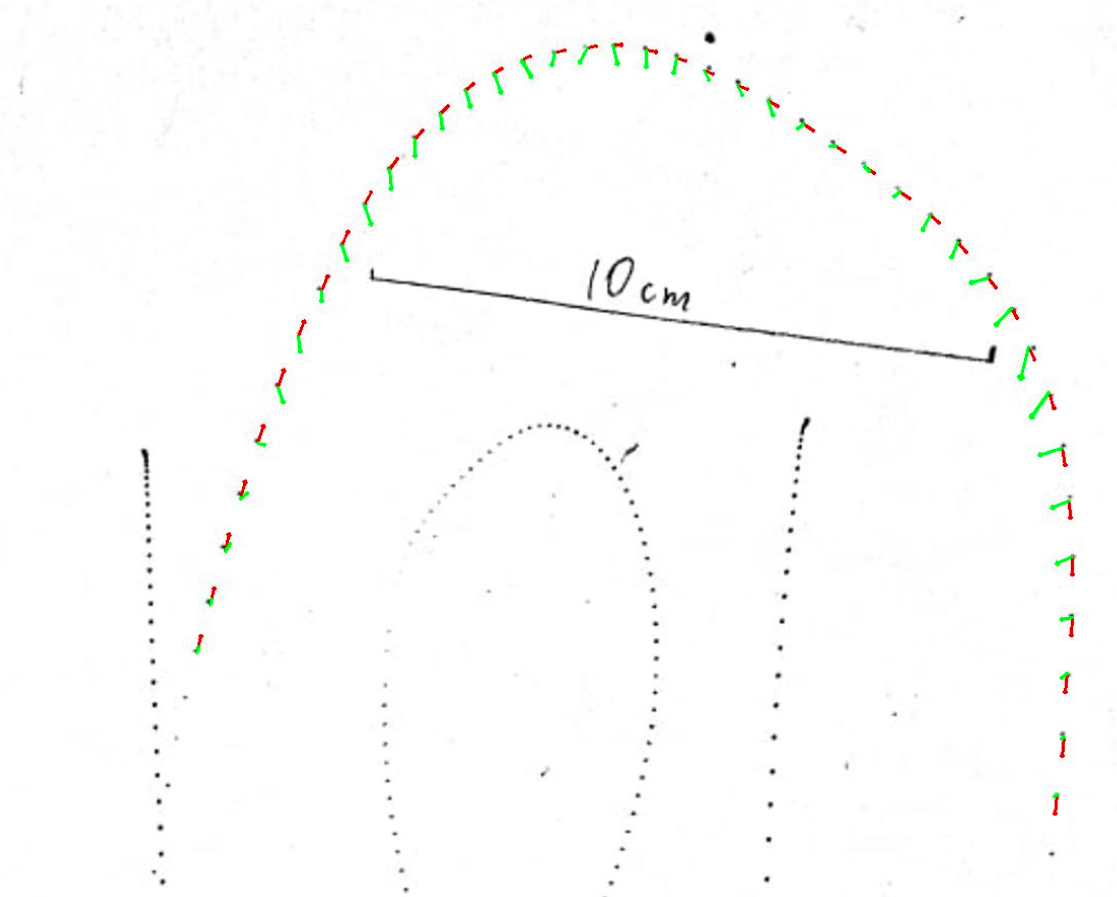 10 cm